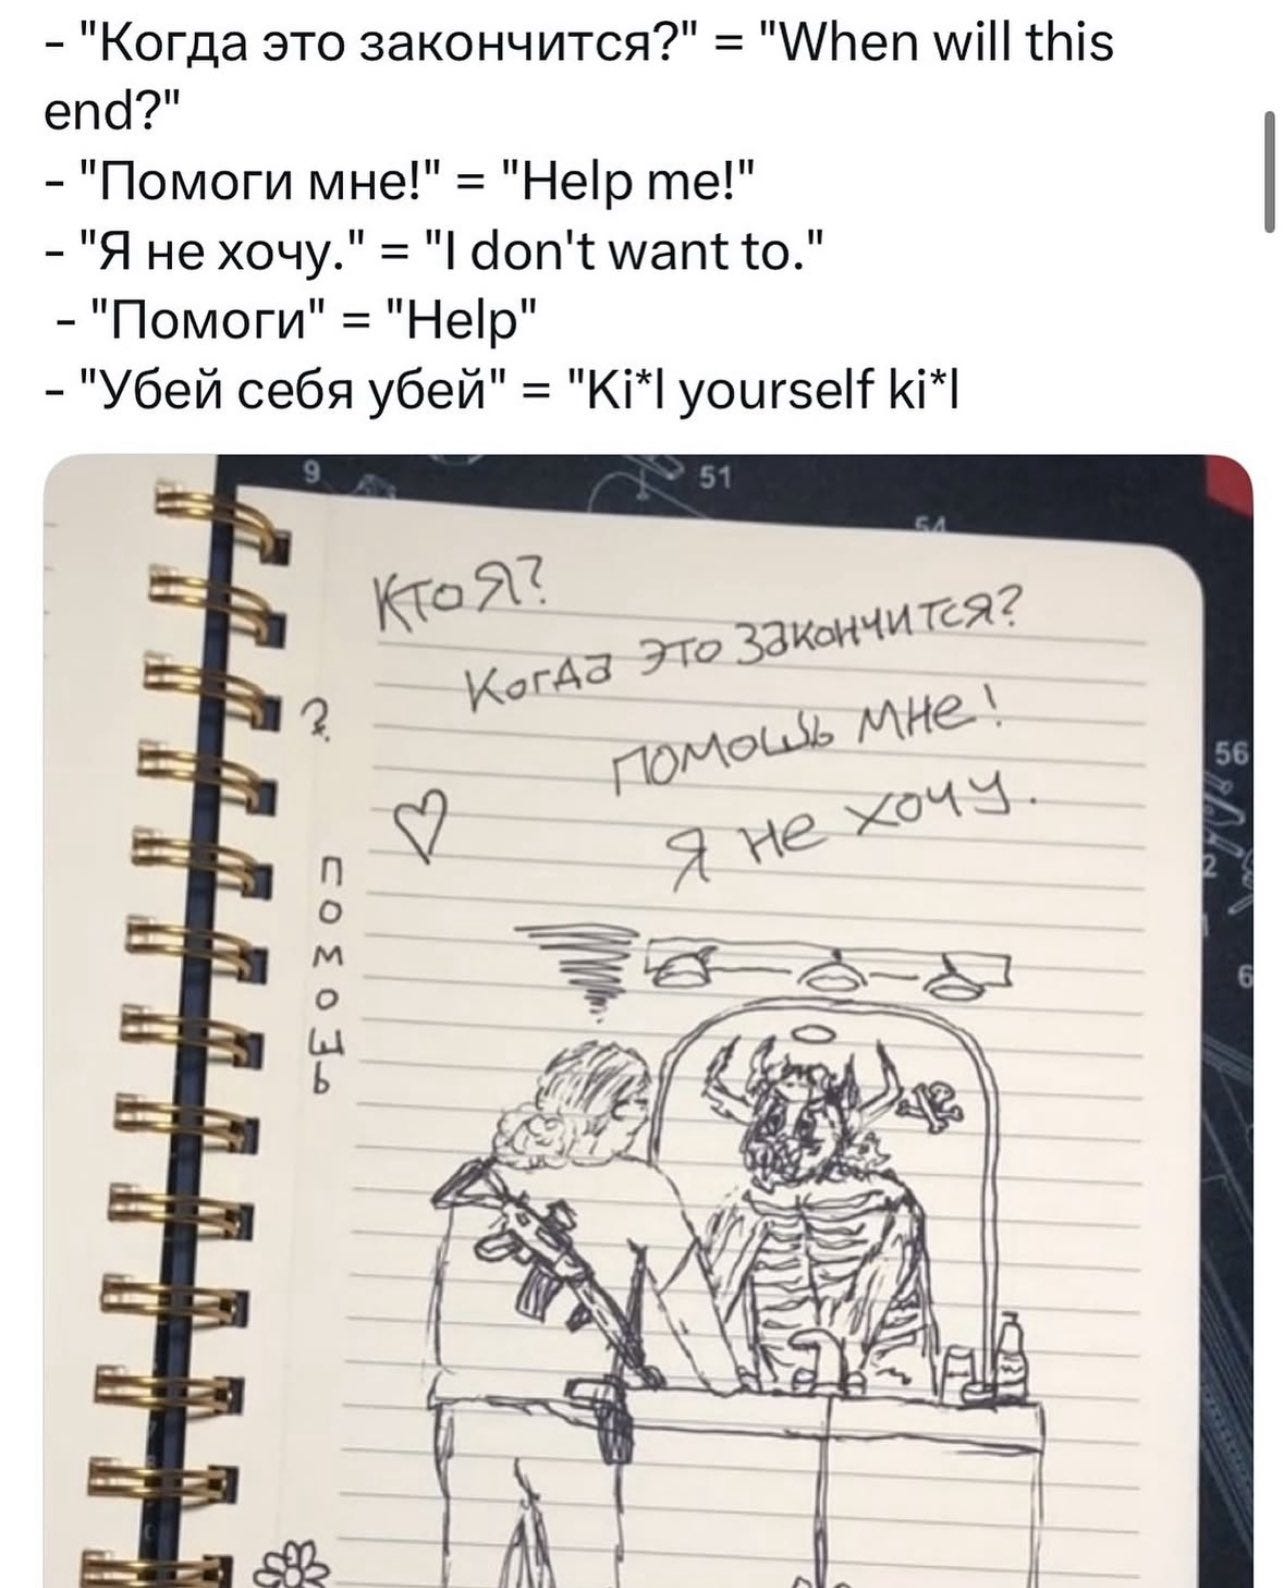 - "Когда это закончится?" = "When will this
end?"
- "Помоги мне!" = "Help me!"
- "Я не хочу." = "I don't want to."
- "Помоги" = "Help"
- "Убей себя убей" = "Ki*l yourself ki*l
9
51
54
Кто Я?
Когда это закончится?
?
помошь мне!
Я не хочу.
помошь
56
2
1
6